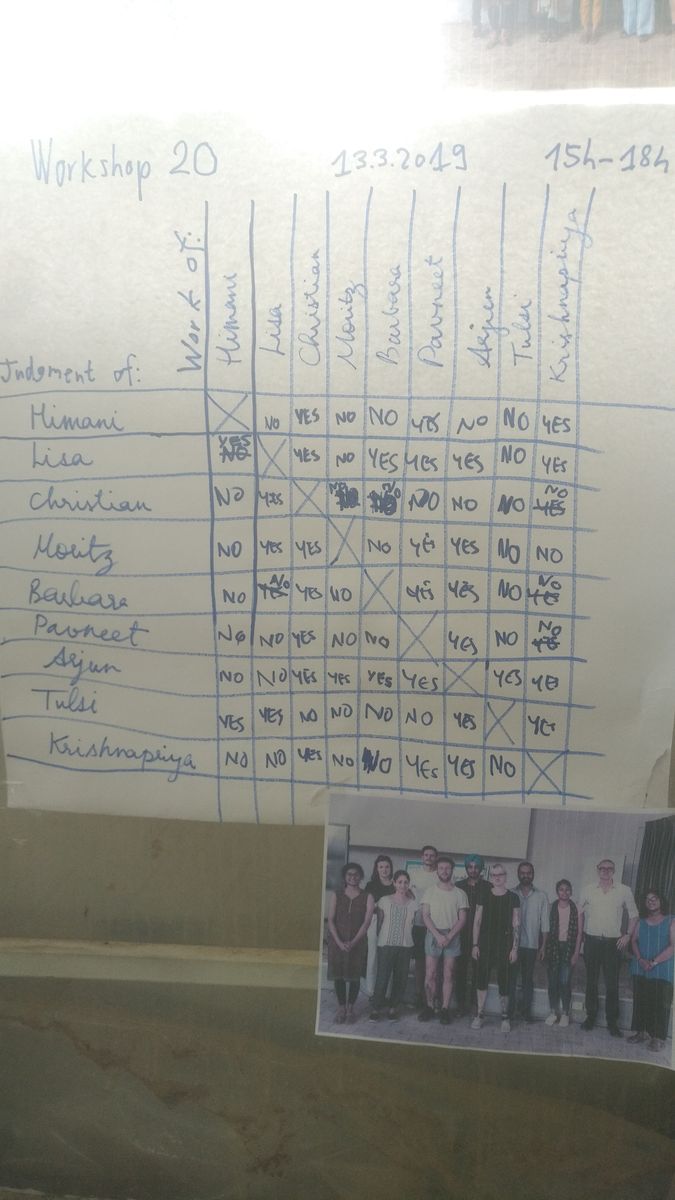 Workshop 20 13.3.2019 15h-18h
Work of: Himani Lisa Christian Moritz Barbara Pavneet Arjun Tulsi Krishnapriya
Judgment of:
Himani NO YES NO NO YES NO NO YES
Lisa YES NO YES NO YES YES YES NO YES
Christian NO YES NO NO NO NO NO NO YES
Moritz NO YES YES NO YES YES NO NO
Barbara NO YES NO YES NO YES YES NO NO YES
Pavneet NO NO YES NO NO YES NO NO YES
Arjun NO NO YES YES YES YES YES YES
Tulsi YES YES NO NO NO NO YES YES
Krishnapriya NO NO YES NO NO YES YES NO